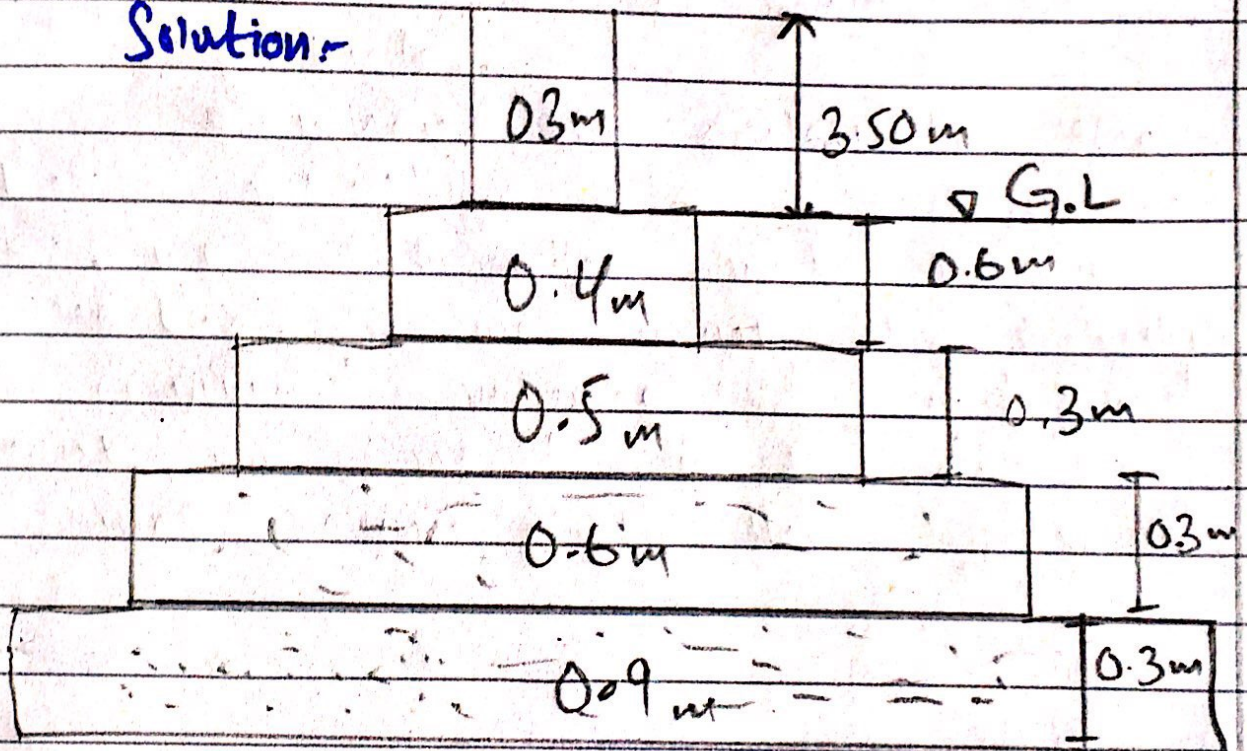 Solution:-
03m
3.50m
G.L
0.4m
0.6m
0.5m
0.3m
0.6m
03m
0.9m
0.3m